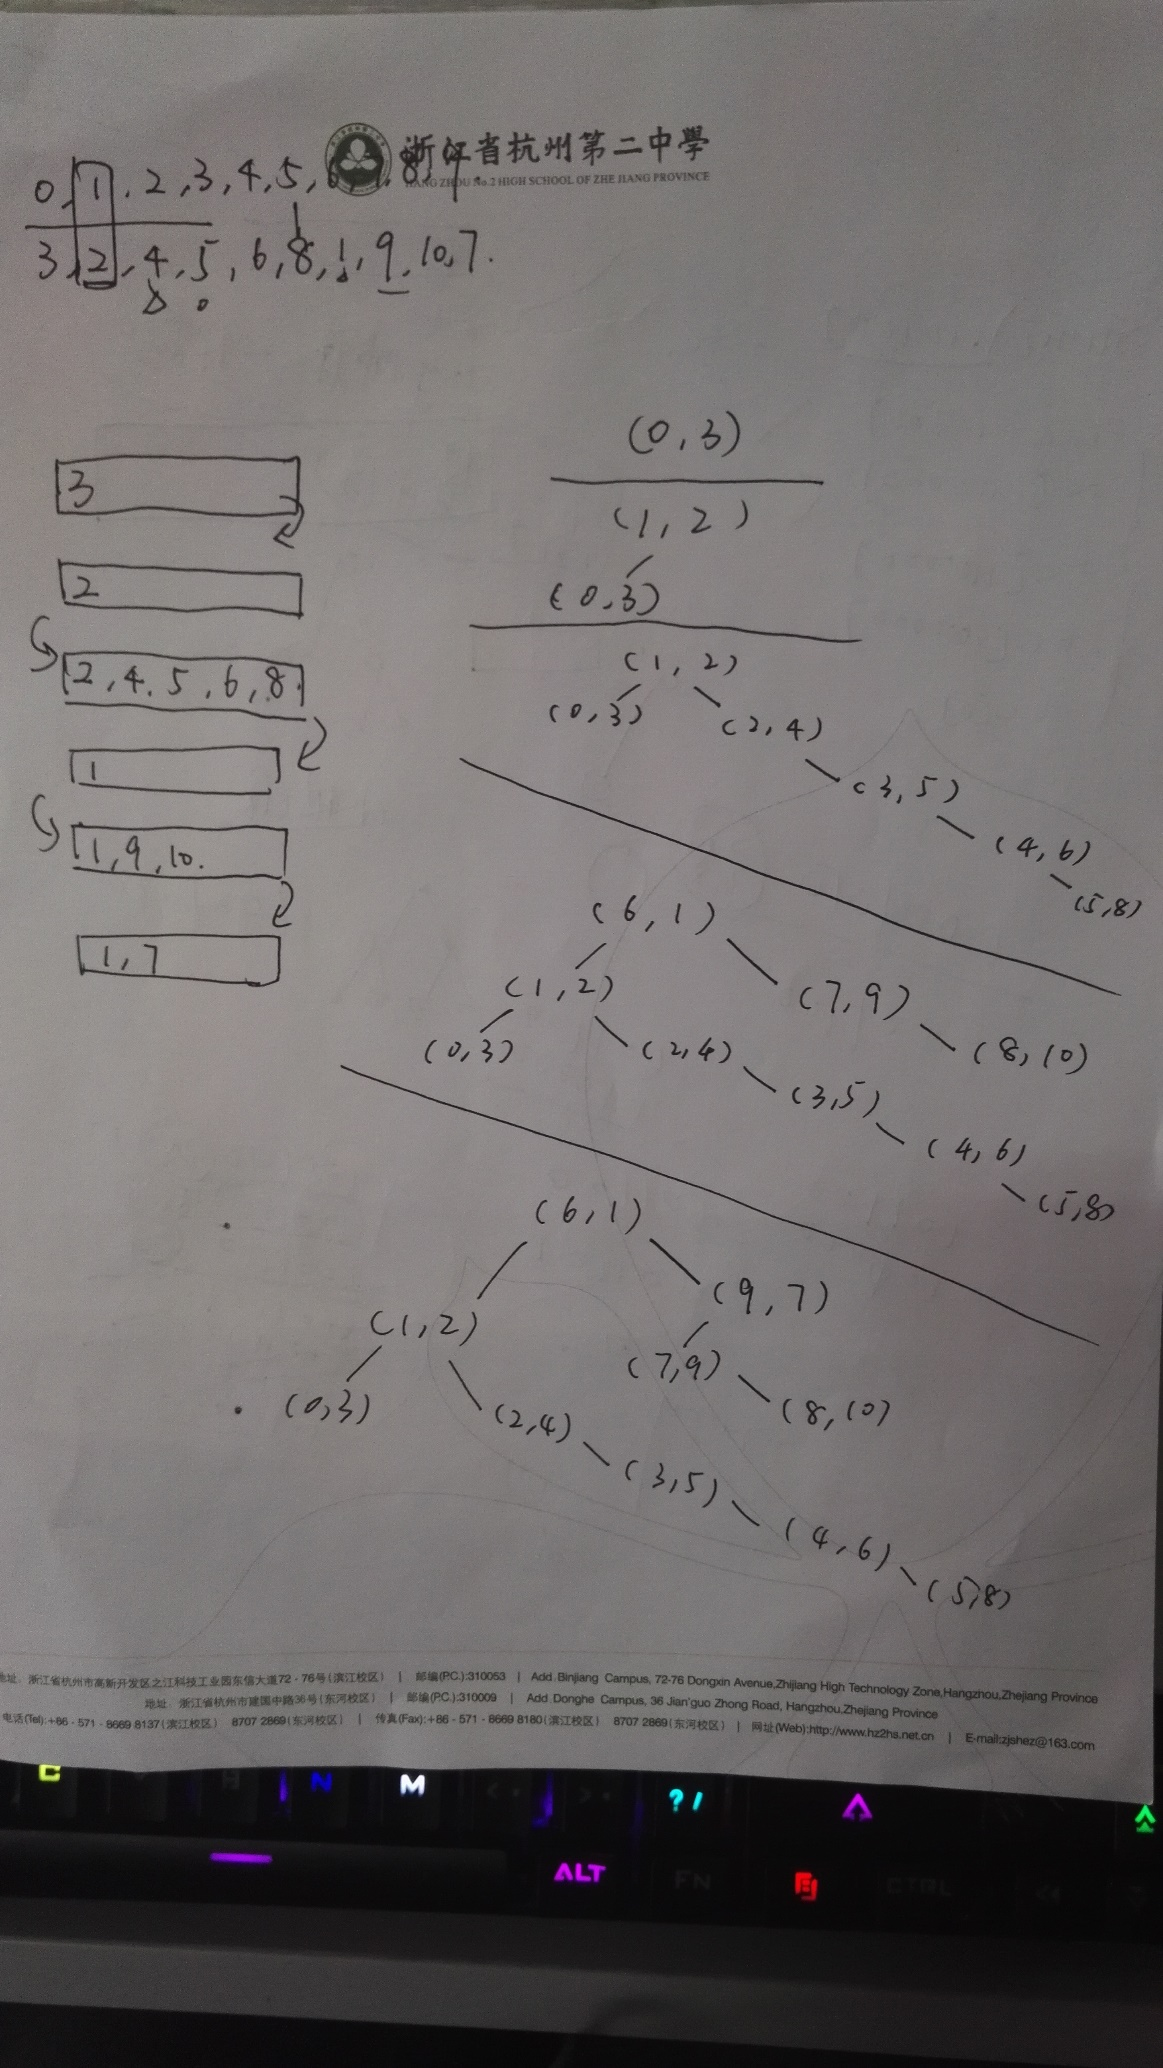 浙江省杭州第二中學
HANG ZHOU No.2 HIGH SCHOOL OF ZHE JIANG PROVINCE
0, 1, 2, 3, 4, 5, 6, 7, 8, 9.
3, 2, 4, 5, 6, 8, 1, 9, 10, 7.
3
2
2, 4, 5, 6, 8.
1
1, 9, 10.
1, 7
(0, 3)
(1, 2)
(0, 3)
(1, 2)
(0, 3) (2, 4)
(3, 5)
(4, 6)
(5, 8)
(6, 1)
(1, 2) (7, 9)
(0, 3) (2, 4) (8, 10)
(3, 5)
(4, 6)
(5, 8)
(6, 1)
(1, 2) (9, 7)
(0, 3) (7, 9)
(2, 4) (8, 10)
(3, 5)
(4, 6)
(5, 8)
地址: 浙江省杭州市高新开发区之江科技工业园东信大道72-76号(滨江校区) | 邮编(P.C.):310053 | Add Binjiang Campus, 72-76 Dongxin Avenue,Zhijiang High Technology Zone,Hangzhou,Zhejiang Province
地址: 浙江省杭州市建国中路36号(东河校区) | 邮编(P.C.):310009 | Add Donghe Campus, 36 Jian'guo Zhong Road, Hangzhou,Zhejiang Province
电话(Tel):+86-571-8669 8137(滨江校区) 8707 2869(东河校区) | 传真(Fax):+86-571-8669 8180(滨江校区) 8707 2869(东河校区) | 网址(Web):http://www.hz2hs.net.cn | E-mail:zjshez@163.com
C N M ? /
ALT FN CTRL